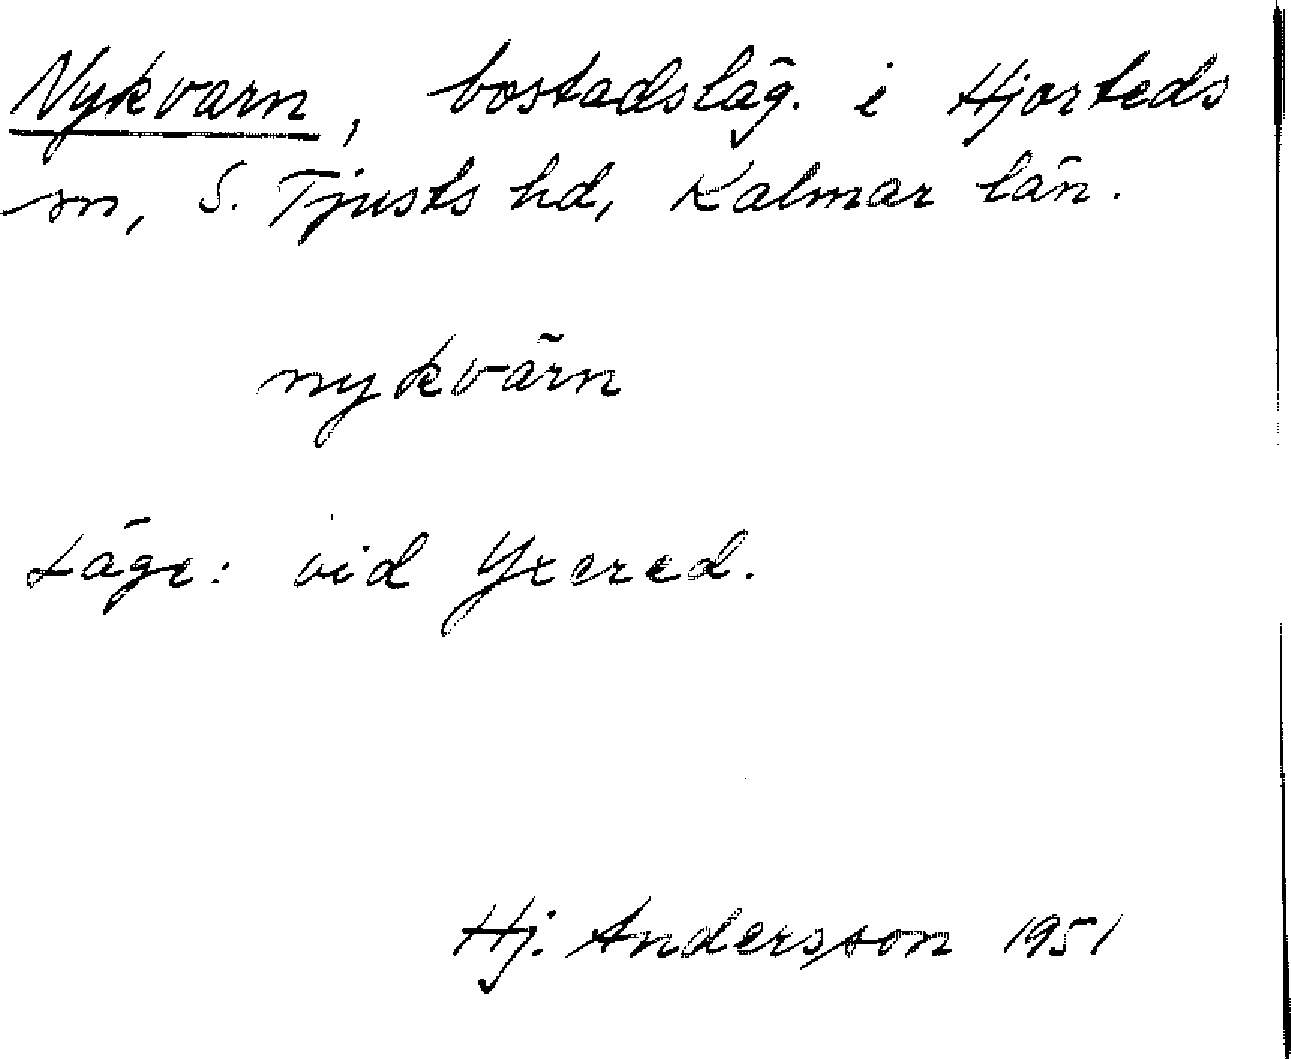 Nykvarn, bostadsläg. i Hjorteds
sn, S. Tjusts hd, Kalmar län.
nykvärn
Läge: vid Yxered.
Hj. Andersson 1951